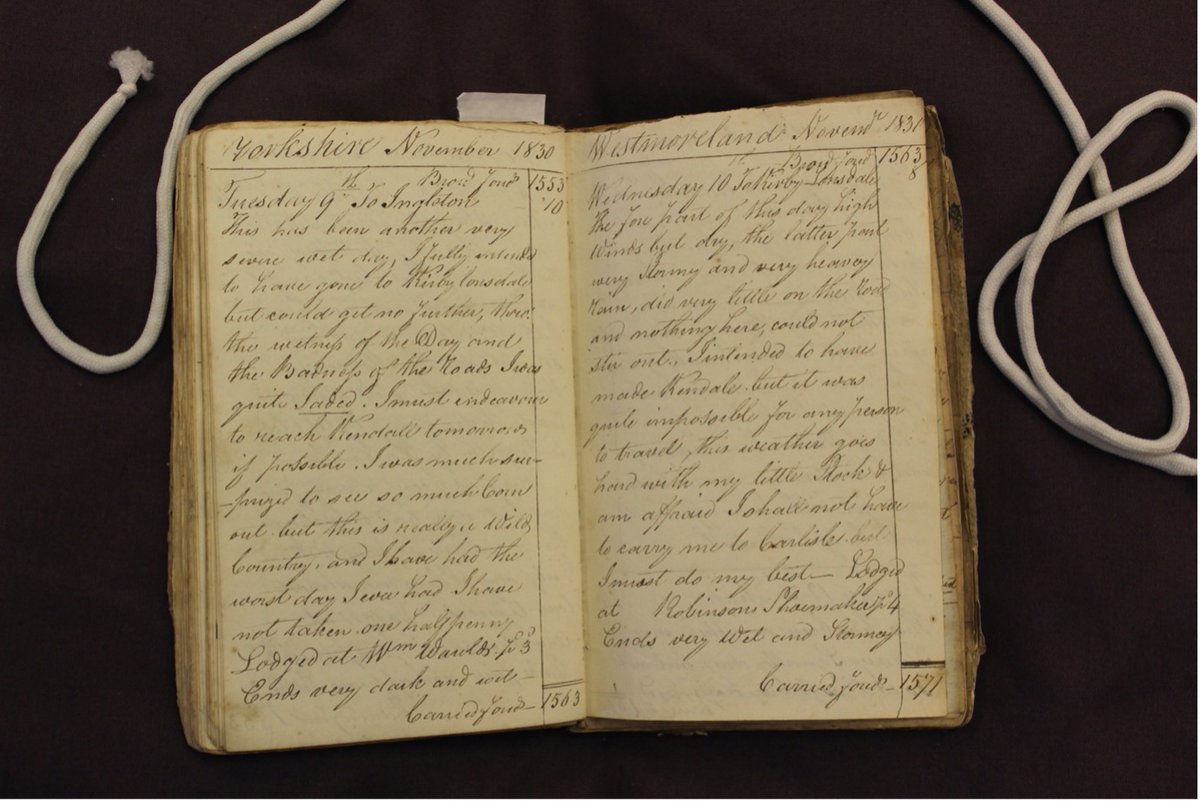 Yorkshire November 1830
Brot forwd 1553
Tuesday 9th To Ingleton 10
This has been another very
severe wet day, I fully intended
to have gone to Kirby Lonsdale
but could get no further, thro'
the wetness of the Day and
the Badness of the Roads I was
quite Jaded. I must endeavour
to reach Kendall tomorrow
if possible. I was much sur-
-prized to see so much Corn
out but this is really a Wild
Country, and I have had the
worst day I ever had I have
not taken one halfpenny
Lodged at Wm Wards. pd 3d
Ends very dark and wet -
Carried forwd - 1563
Westmoreland Novemr 1830
Brot forwd 1563
Wednesday 10th To Kirby Lonsdale 8
The fore part of this day high
Winds but dry, the latter part
very Stormy and very heavey
Rain, did very little on the Road
and nothing here, could not
stir out. I intended to have
made Kendale but it was
quite impossible for any person
to travel, this weather goes
hard with my little Stock &
am affraid I shall not have
to carry me to Carlisle but
I must do my best - Lodged
at Robinsons Shoemaker pd 4
Ends very Wet and Stormey
Carried forwd - 1571